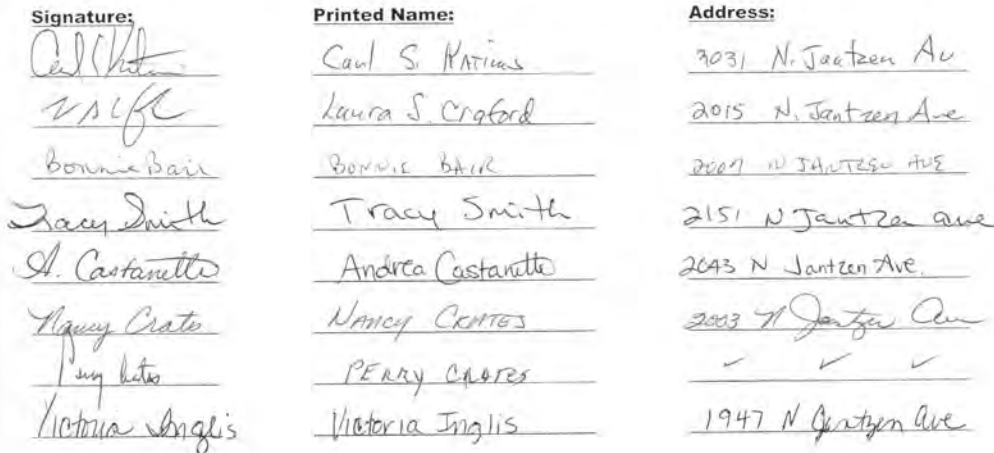 Signature: Printed Name: Address:
Carl S. 3031 N. Jantzen Av
Laura S. Craford 2015 N. Jantzen Ave
Bonnie Bair BONNIE BAIR 2007 N JANTZEN AVE
Tracy Smith Tracy Smith 2151 N Jantzen ave
A. Castanette Andrea Castanette 2043 N Jantzen Ave.
Nancy Crates NANCY CRATES 2003 N Jantzen Ave
Perry Crates PERRY CRATES ✓ ✓ ✓
Victoria Inglis Victoria Inglis 1947 N Jantzen Ave